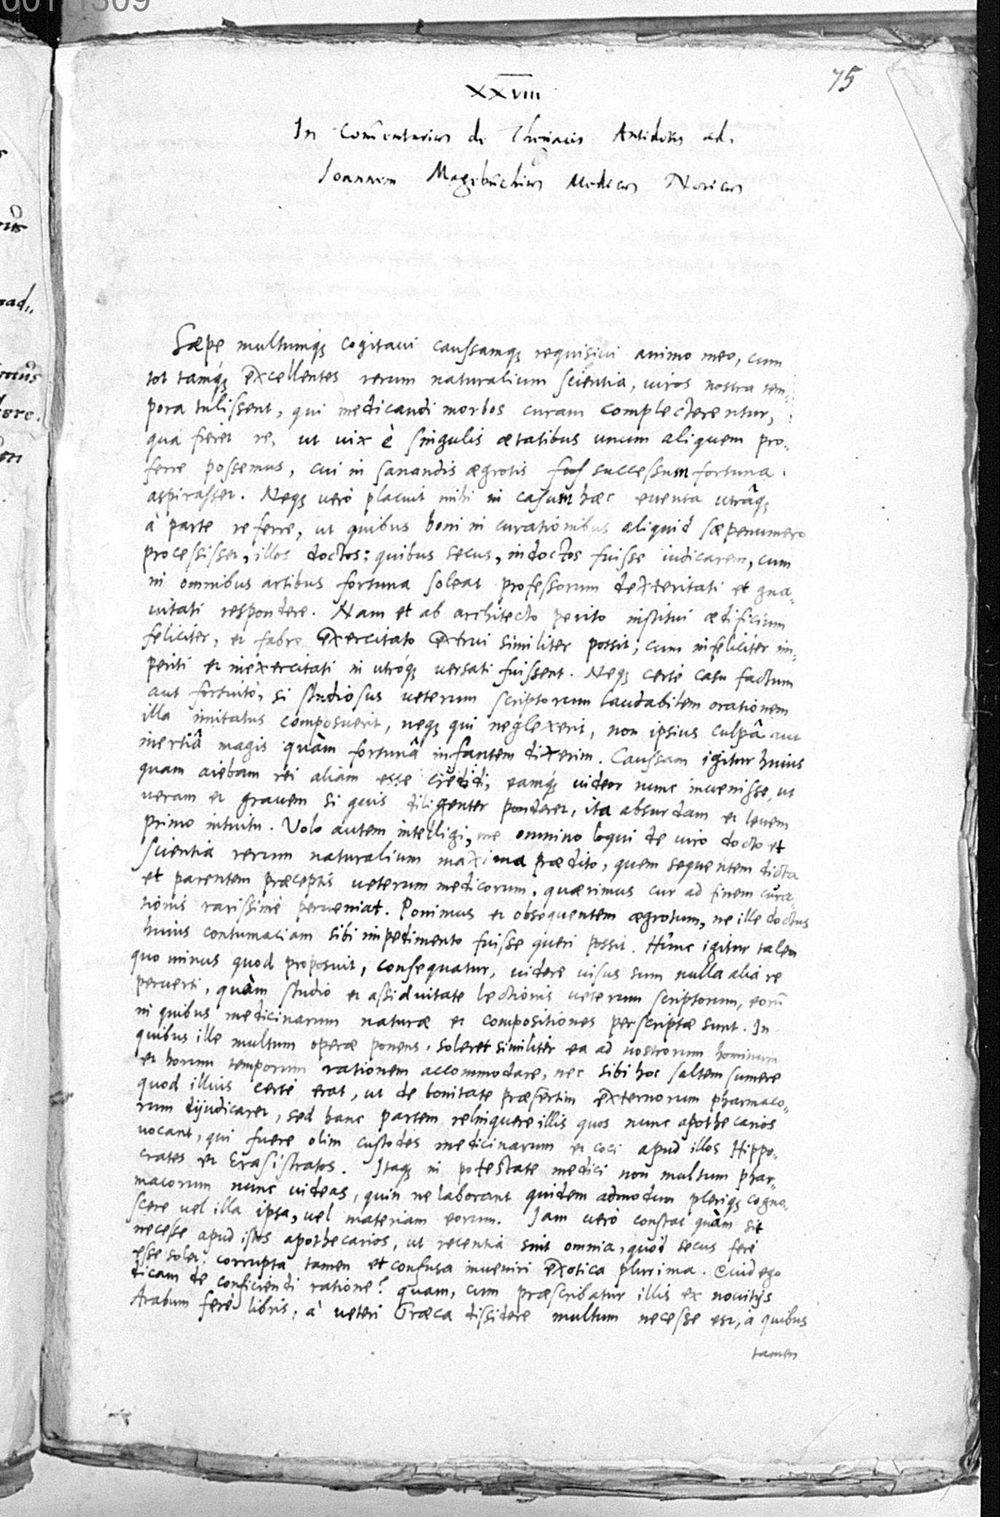 75
XXVIII
In Commentarium de Theriacis Antidotis ad.
Ioannem Magebuchium Medicum Noricum
Sæpe multumq; cogitavi caussamq; requisivi animo meo, cum
tot tamq; excellentes rerum naturalium scientia, viros nostra tem-
pora tulissent, qui medicandi morbos curam complecterentur,
qua fieret re, ut vix è singulis ætatibus unum aliquem pro-
ferre possemus, cui in sanandis ægrotis successum fortuna
aspirasset. Neq; verò placuit mihi in casum hæc eventa utrâq;
à parte referre, ut quibus boni in curationibus aliquid sæpenumero
processisset, illos doctos: quibus secus, indoctos fuisse iudicarem, cum
in omnibus artibus fortuna soleat professorum dexteritati et gna-
vitati respondere. Nam et ab architecto perito institui ædificium
feliciter, et fabro exercitato extrui similiter possit; cum infeliciter im-
periti et inexercitati in utroq; versati fuissent. Neq; certè casu factum
aut fortuito, si studiosus veterum scriptorum laudabilem orationem
illa imitatus composuerit, neq; qui neglexerit, non ipsius culpâ aut
inertiâ magis quàm fortunâ infantem dixerim. Caussam igitur huius
quam aiebam rei aliam esse credidi, eamq; videor nunc invenisse, ut
veram et gravem si quis diligenter ponderet, ita absurdam et levem
primo intuitu. Volo autem intelligi, me omnino loqui de viro docto et
scientia rerum naturalium maxima prædito, quem sequentem dicta
et parentem præceptis veterum medicorum, quærimus cur ad finem cura-
tionis rarissimè perveniat. Ponimus et obsequentem ægrotum, ne ille doctus
huius contumaciam sibi impedimento fuisse queri possit. Hunc igitur talem
quo minus quod proposuit, consequatur, videre visus sum nulla alia re
perverti, quàm studio et assiduitate lectionis veterum scriptorum, eorū
in quibus medicinarum naturæ et compositiones perscriptæ sunt. In
quibus ille multum operæ ponens, soleret similiter ea ad nostrorum hominum
et horum temporum rationem accommodare, nec sibi hoc saltem sumere
quod illius certè erat, ut de bonitate præsertim externorum pharmaco-
rum dijudicaret, sed hanc partem relinquere illis quos nunc apothecarios
vocant, qui fuere olim custodes medicinarum et coci apud illos Hippo-
crates et Erasistratos. Itaq; in potestate medici non multum phar-
macorum nunc videas, quin ne laborant quidem admodum pleriq; cogno-
scere vel illa ipsa, vel materiam eorum. Jam verò constat quàm sit
necesse apud istos apothecarios, ut recentia sint omnia, quod secus ferè
esse solet, corrupta tamen et confusa inveniri exotica plurima. Quid ego
dicam de conficiendi ratione? quam, cum præscribatur illis ex novitijs
Arabum ferè libris, à veteri Græca dissidere multum necesse est, à quibus
tamen